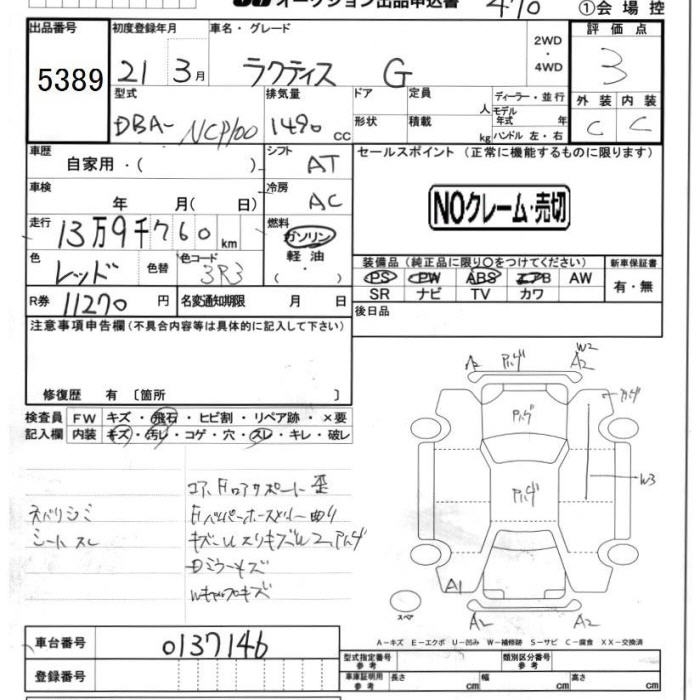 オークション出品申込書
①会場控
出品番号 5389
初度登録年月 21 3月
車名・グレード ラクティス G
2WD・4WD
評価点 3
型式 DBA-NCP100
排気量 1490 CC
ドア
定員 人
ディーラー・並行
形状
積載 kg
モデル年式 年
ハンドル 左・右
外装 内装
C C
車歴 自家用・( )
シフト AT
セールスポイント (正常に機能するものに限ります)
車検 年 月( 日)
冷房 AC
NOクレーム・売切
走行 13万9千760 km
燃料 ガソリン 軽油 ・( )
色 レッド 色替
色コード 3R3
装備品 (純正品に限り○をつけてください)
新車保証書
PS PW ABS エアB AW
SR ナビ TV カワ
有・無
R券 11270 円
名変通知期限 月 日
後日品
注意事項申告欄(不具合内容等は具体的に記入して下さい)
修復歴 有〔箇所 〕
検査員記入欄
FW キズ・飛石・ヒビ割・リペア跡・×要
内装 キズ・汚レ・コゲ・穴・スレ・キレ・破レ
シートスレ
Dミラーキズ
A W2 A2
W3
A1
スペア
A2 A2
A-キズ E-エクボ U-凹み W-補修跡 S-サビ C-腐食 XX-交換済
車台番号 0137146
登録番号
型式指定番号 参考
類別区分番号 参考
車庫証明用 参考 長さ cm 幅 cm 高さ cm